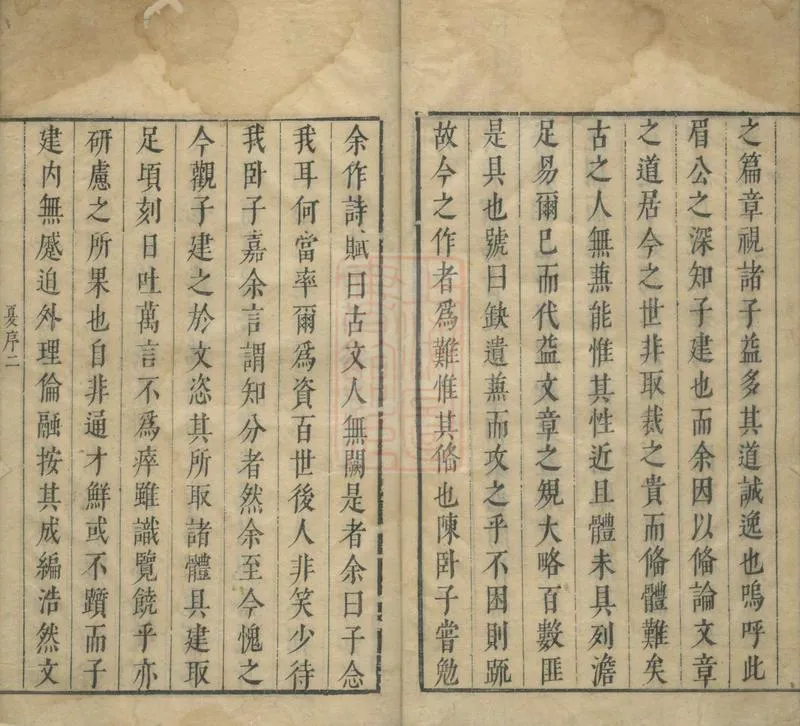 之篇章視諸子益多其道誠逸也嗚呼此
眉公之深知子建也而余因以脩論文章
之道居今之世非取裁之貴而脩體難矣
古之人無兼能惟其性近且體未具列澹
足易爾已而代益文章之規大略百數匪
是具也號曰缺遺兼而攻之乎不困則踈
故今之作者爲難惟其脩也陳卧子嘗勉
余作詩賦曰古文人無闕是者余曰子念
我耳何當率爾爲資百世後人非笑少待
我卧子嘉余言謂知分者然余至今愧之
今觀子建之於文恣其所取諸體具建取
足頃刻日吐萬言不爲瘁雖識覽饒乎亦
研慮之所果也自非通才鮮或不躓而子
建内無蹙迫外理倫融按其成編浩然文
夏序二